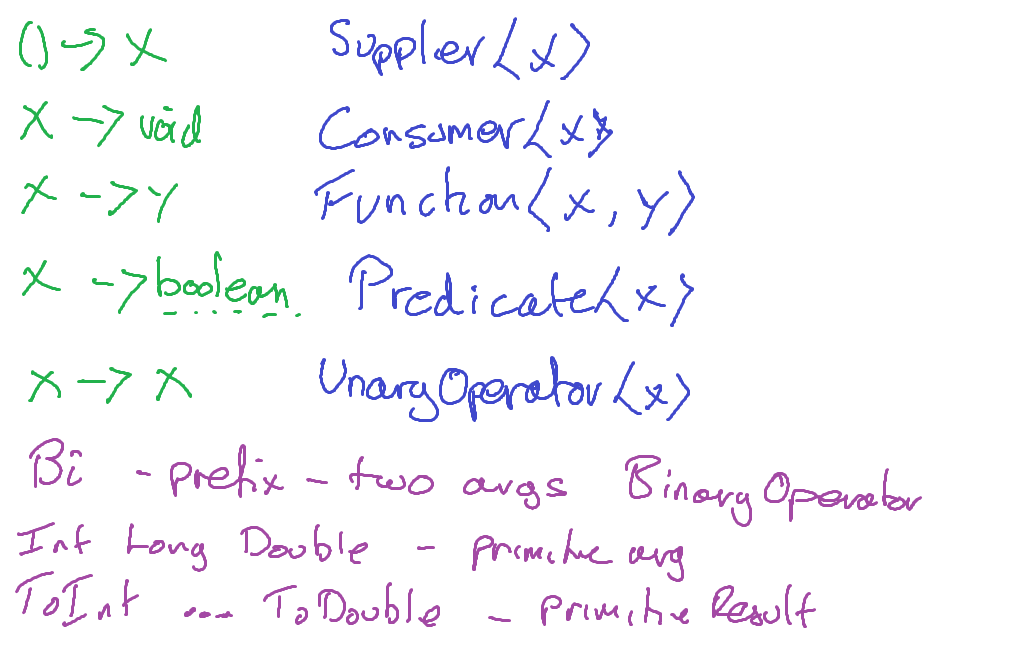 () -> X Suppler<x>
X -> void Consumer<x>
X -> Y Function<x, y>
X -> boolean Predicate<x>
X -> X UnaryOperator<x>
Bi - prefix - two args BinaryOperator
Int Long Double - primitive arg
ToInt ... ToDouble - primitive Result